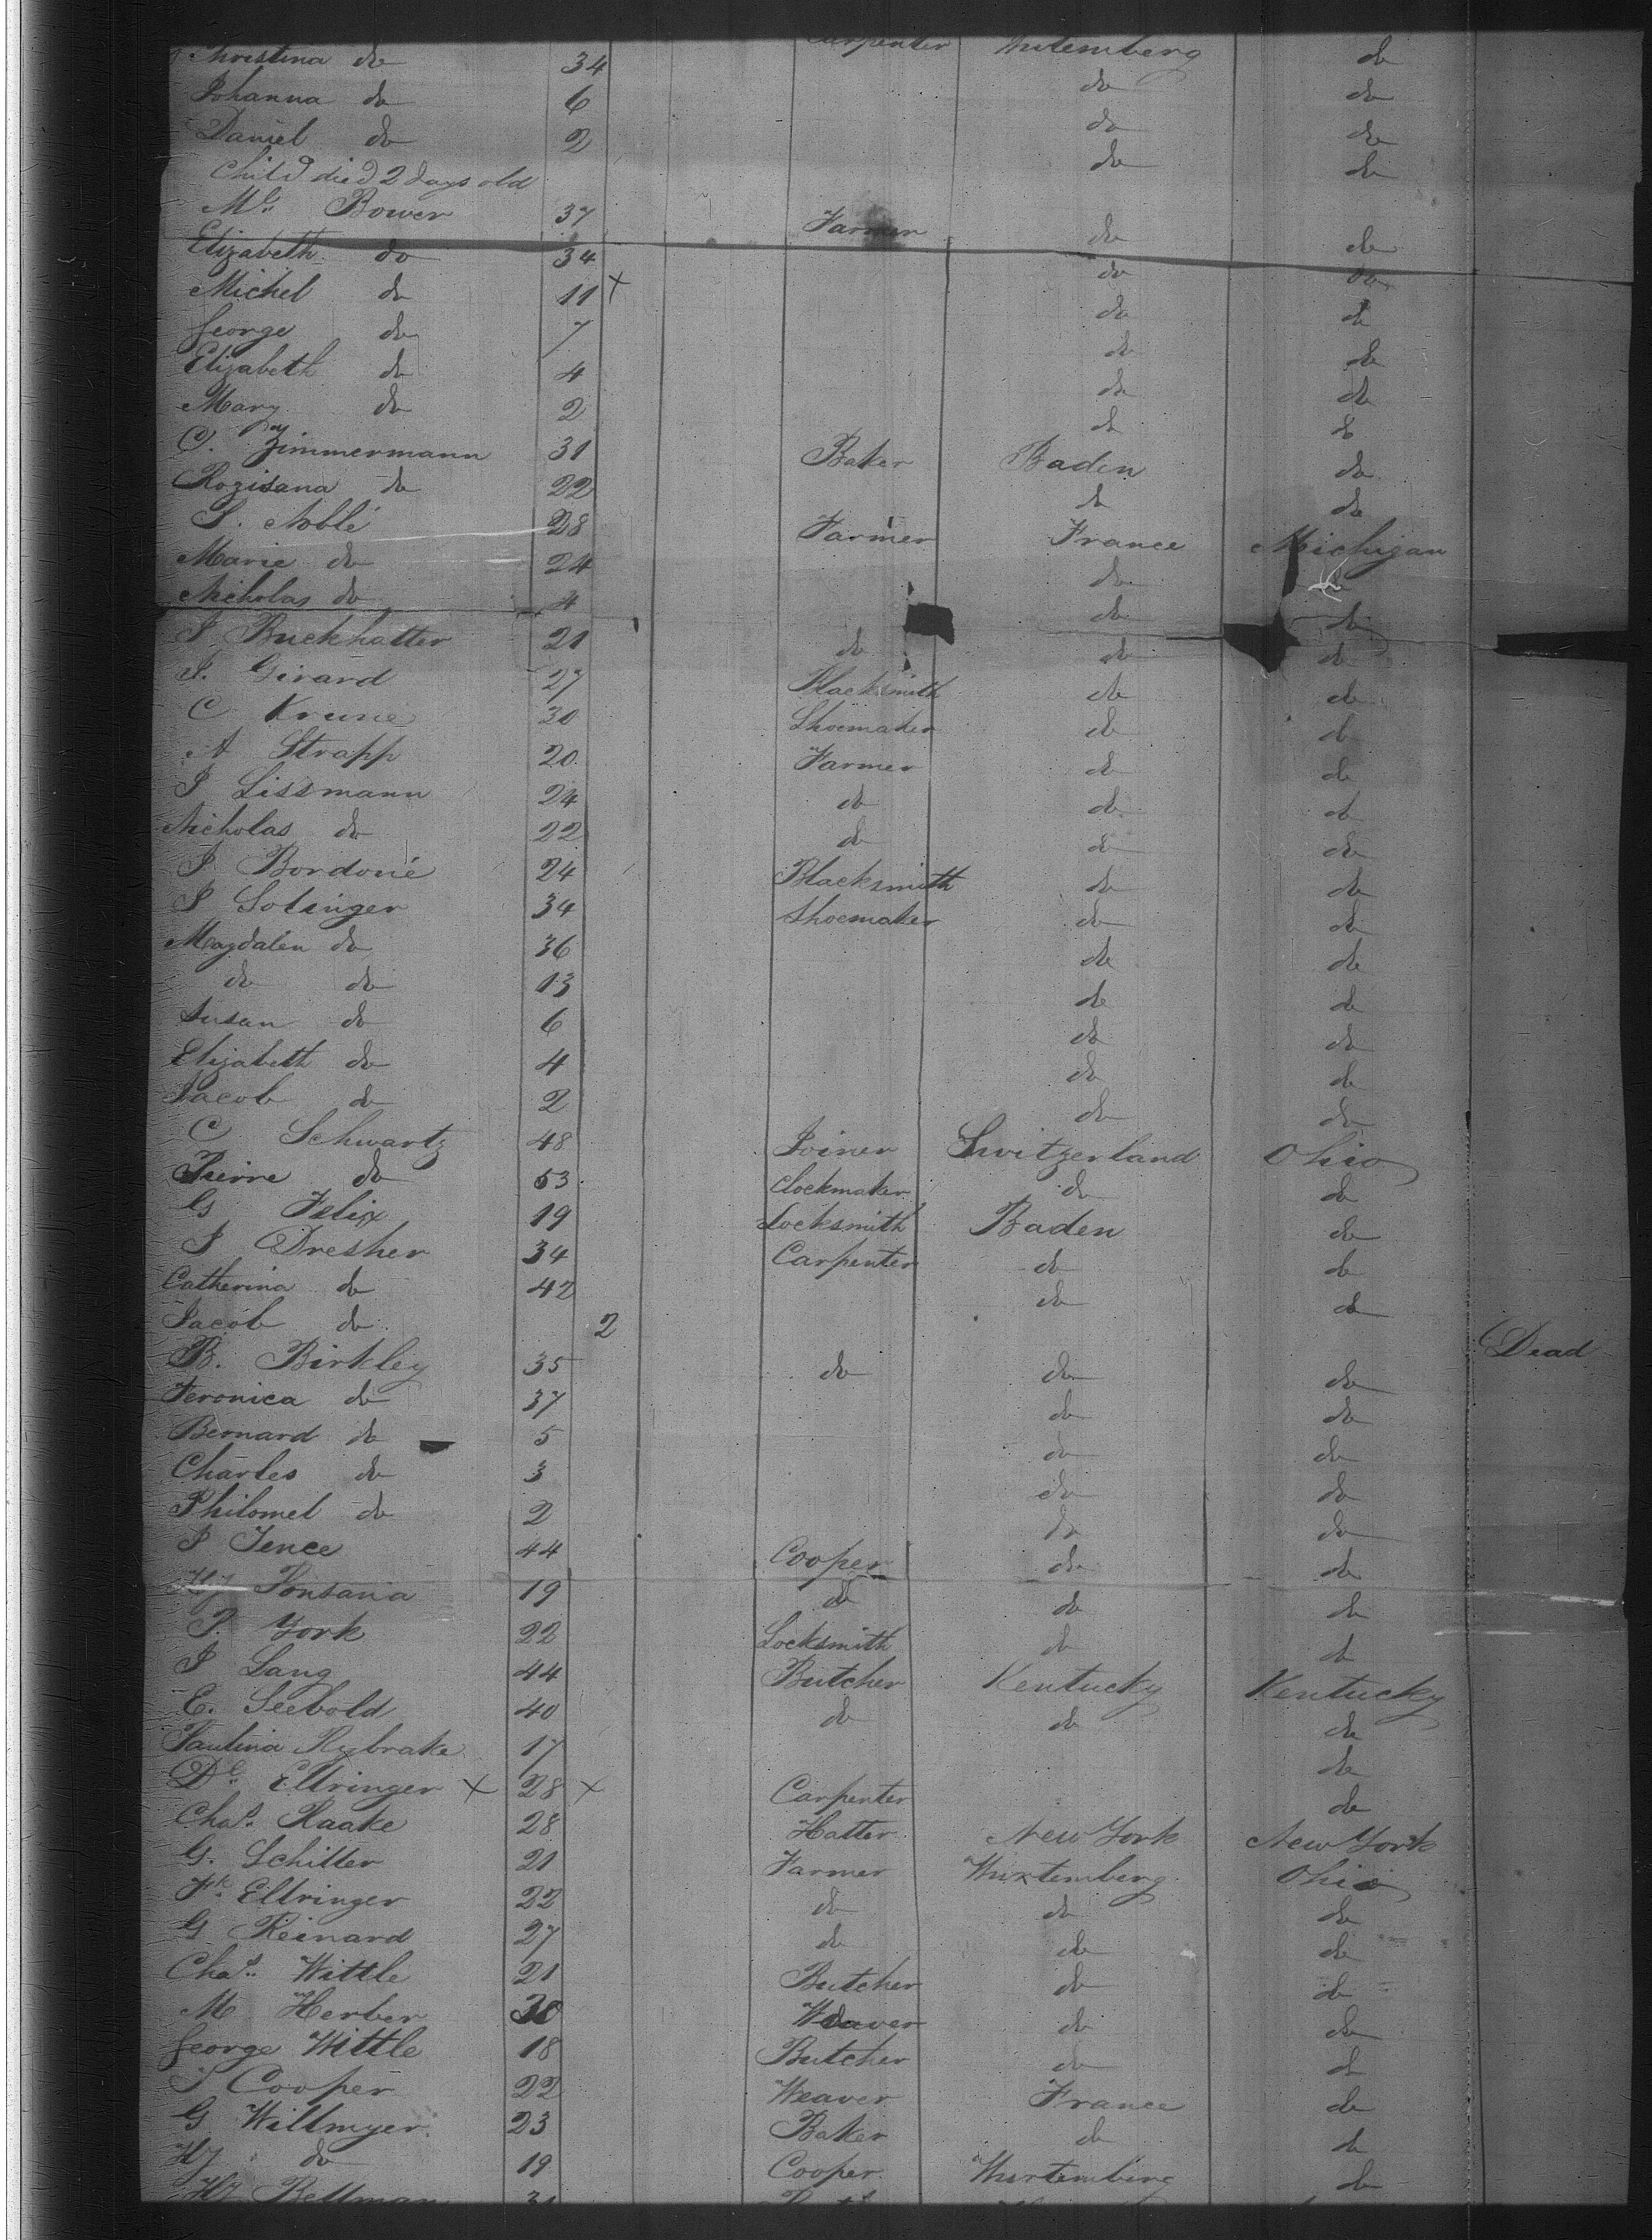 Carpenter Wutemberg
Christina do 34 do
Johanna do 6 do do
Daniel do 2 do do
Child died 2 days old do do
Mr. Bower 37 Farmer do do
Elizabeth do 34 do do
Michel do 11 x do do
George do 7 do do
Elizabeth do 4 do do
Mary do 2 do do
C. Zimmermann 31 Baker Baden do
Rozisana do 22 do do
S. Noblé 28 Farmer France Michigan
Marie do 24 do do
Nicholas do 4 do do
J Buckhatter 21 do do do
J. Girard 27 Blacksmith do do
C Krune 30 Shoemaker do do
A Strapp 20 Farmer do do
J Lissmann 24 do do do
Nicholas do 22 do do do
J Bordoné 24 Blacksmith do do
J Solinger 34 Shoemaker do do
Magdalen do 36 do do
do do 13 do do
Susan do 6 do do
Elizabeth do 4 do do
Jacob do 2 do do
C Schwartz 48 Joiner Switzerland Ohio
Pierre do 53 Clockmaker do do
G Felix 19 Locksmith Baden do
J Dresher 34 Carpenter do do
Catherina do 42 do do
Jacob do 2 Dead
B. Birkley 35 do do do
Feronica do 37 do do
Bernard do 5 do do
Charles do 3 do do
Philomel do 2 do do
J Jence 44 Cooper do do
Hy Fonsana 19 do do do
P. York 22 Locksmith do do
J Lang 44 Butcher Kentucky Kentucky
E. Seebold 40 do do do
Paulina Rybrake 17 do
Dl. Ellringer x 28 x Carpenter do
Chas. Raake 28 Hatter New York New York
G. Schiller 21 Farmer Wurtemberg Ohio
Fk. Ellringer 22 do do do
G Reinard 27 do do do
Chas. Wittle 21 Butcher do do
M Herber 30 Weaver do do
George Wittle 18 Butcher do do
J Cooper 22 Weaver France do
G Willmyer 23 Baker do do
Hy do 19 Cooper Wurtemberg do
Hy Bellman 31